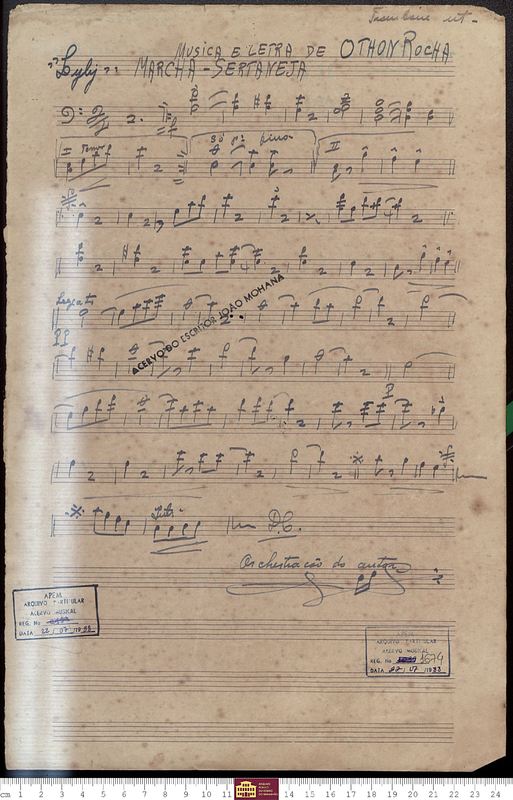 Trombone ut -
MUSICA E LETRA DE OTHON ROCHA
"Lyly" MARCHA - SERTANEJA
I
II
Legato
PP
ACERVO DO ESCRITOR JOÃO MOHANA
P
D.C.
Orchestração do autor
APEM
ARQUIVO PARTICULAR
ACERVO MUSICAL
REG. No
DATA 22 / 07 / 1988
APEM
ARQUIVO PARTICULAR
ACERVO MUSICAL
REG. No 1674
DATA 22 / 07 / 1988
cm 1 2 3 4 5 6 7 8 9 10 11 12 13 14 15 16 17 18 19 20 21 22 23 24